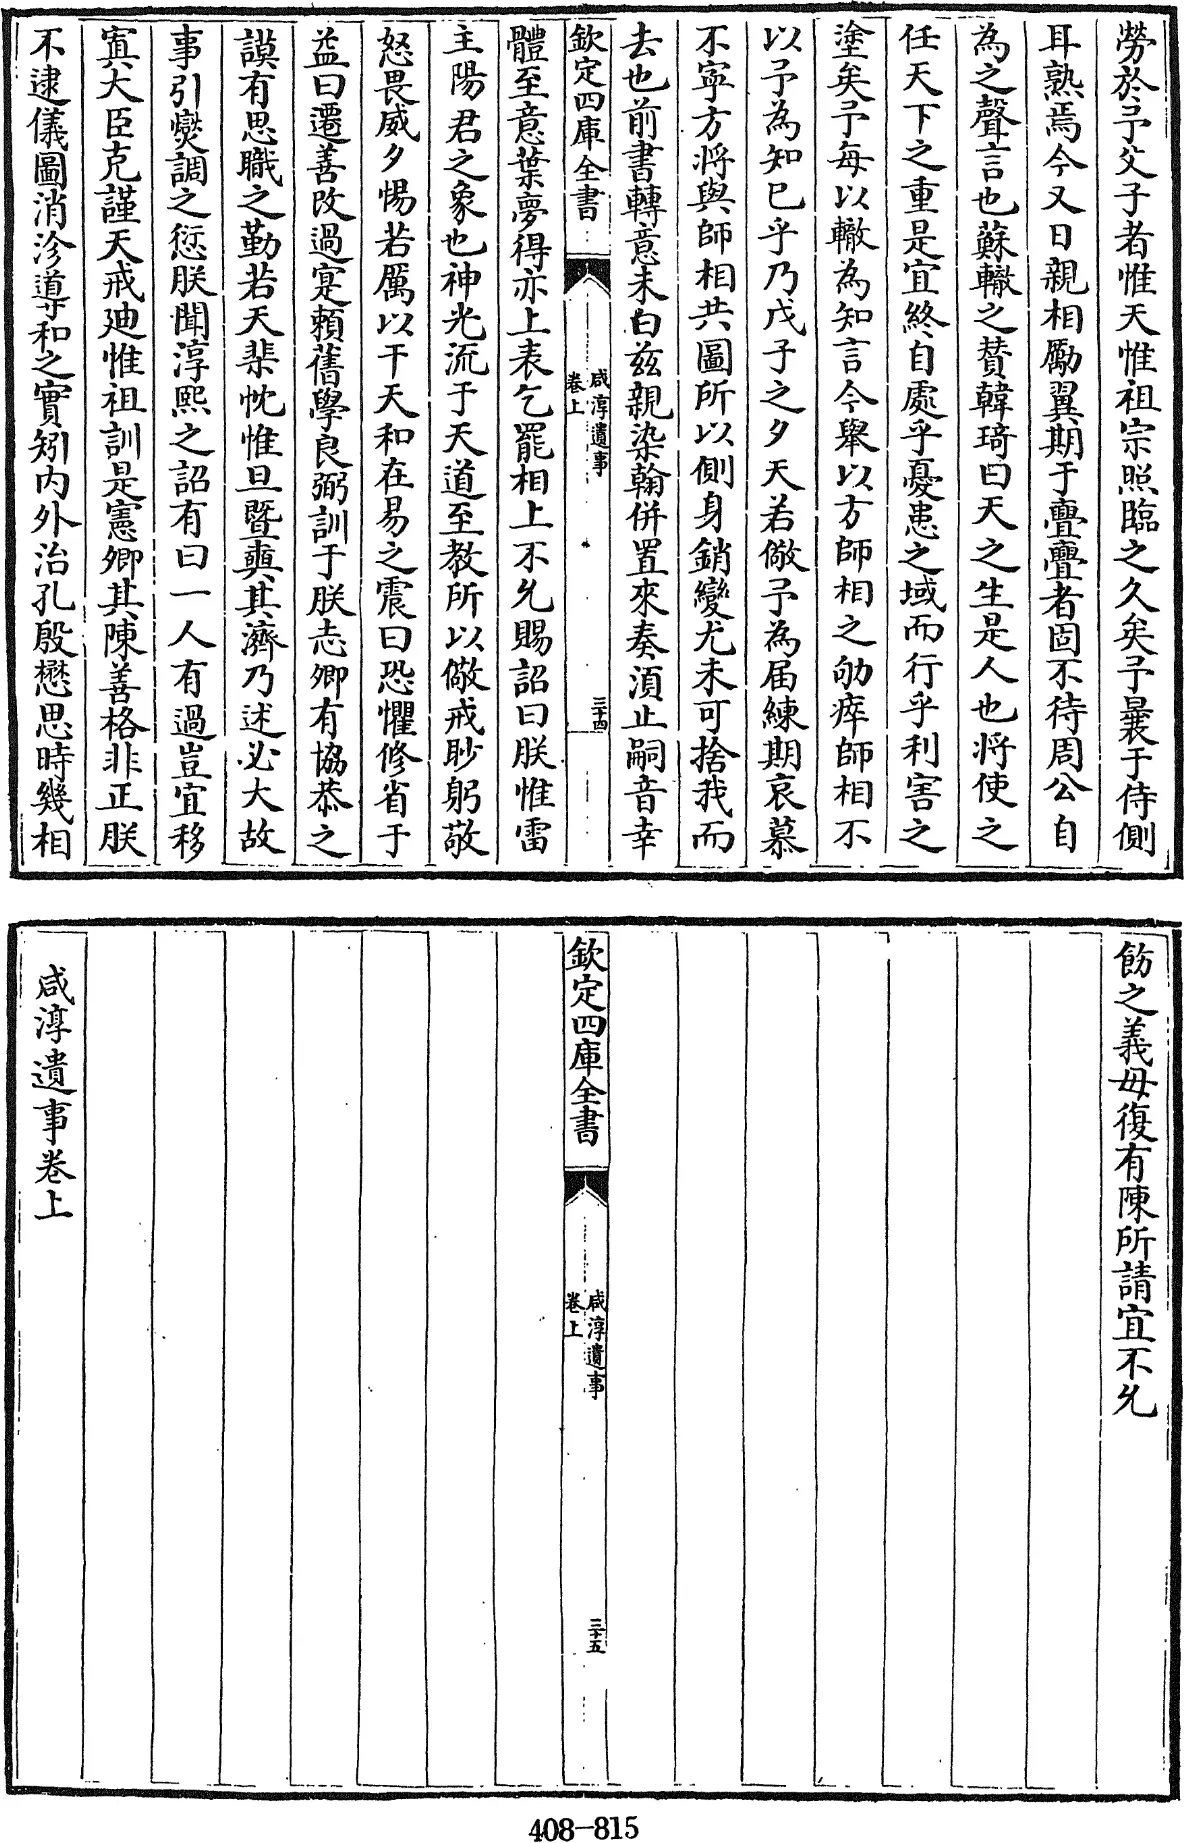 勞於予父子者惟天惟祖宗照臨之久矣予曩于侍側
耳熟焉今又日親相勵翼期于亹亹者固不待周公自
為之聲言也蘇轍之賛韓琦曰天之生是人也將使之
任天下之重是宜終自處乎憂患之域而行乎利害之
塗矣予每以轍為知言今舉以方師相之劬瘁師相不
以予為知已乎乃戊子之夕天若儆予為届練期哀慕
不寜方將與師相共圖所以側身銷變尤未可捨我而
去也前書轉意未白兹親染翰併置來奏湏止嗣音幸
欽定四庫全書
咸淳遺事
卷上
三十四
體至意葉夢得亦上表乞罷相上不允賜詔曰朕惟雷
主陽君之象也神光流于天道至教所以儆戒眇躬敬
怒畏威夕惕若厲以干天和在易之震曰恐懼修省于
益曰遷善改過寔頼舊學良弼訓于朕志卿有協恭之
謨有思職之勤若天棐忱惟旦暨奭其濟乃述必大故
事引爕調之愆朕聞淳熙之詔有曰一人有過豈宜移
寘大臣克謹天戒廸惟祖訓是憲卿其陳善格非正朕
不逮儀圖消沴導和之實矧内外治孔殷懋思時幾相
飭之義毋復有陳所請宜不允
欽定四庫全書
咸淳遺事
卷上
三十五
咸淳遺事卷上
408-815